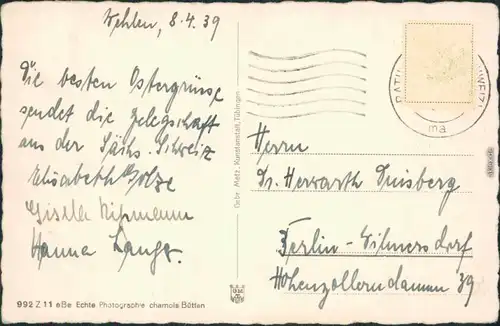 Wehlen, 8.4.39
Die besten Ostergrüsse
sendet die Gelegschaft
aus der Sächs. Schweiz
Elisabeth
Gisela
Hanna Lange.
Herrn
Dr. Herwarth Duisberg
Berlin-Wilmersdorf
Hohenzollerndamm 39
Gebr. Metz, Kunstanstalt, Tübingen
RATH
ma
992 Z 11 eBe Echte Photographie chamois Bütten